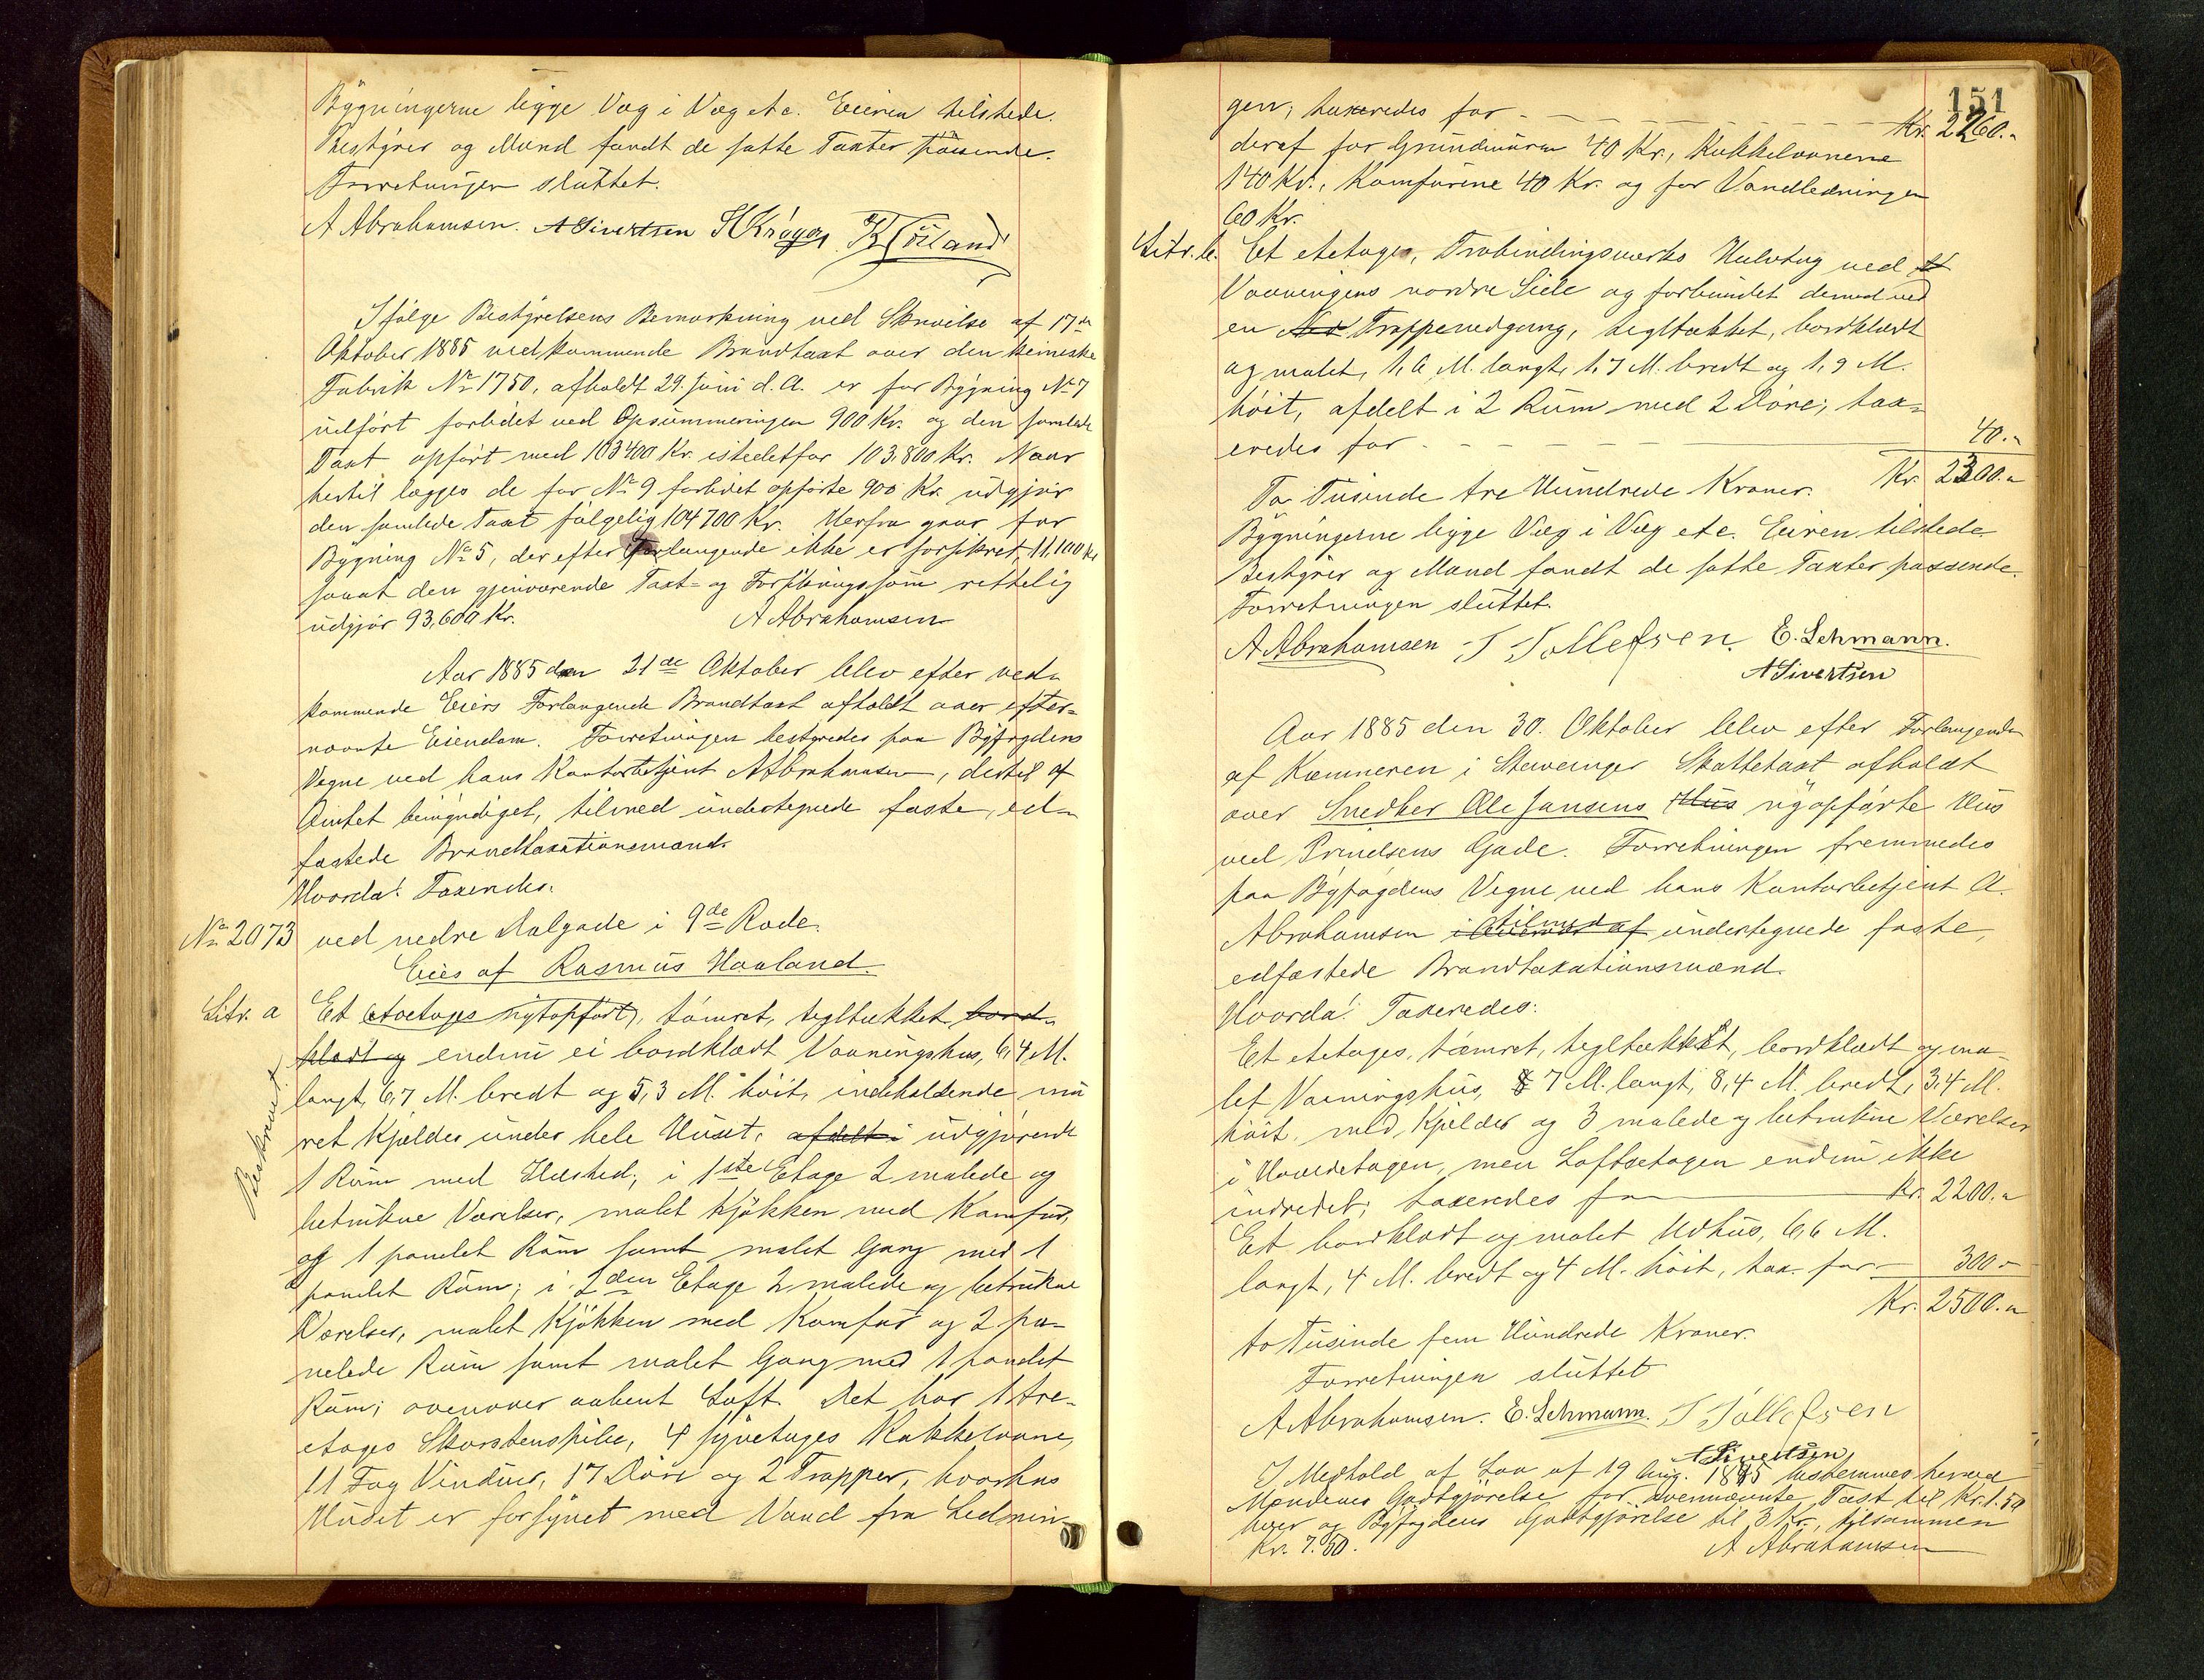 Bygningerne ligge Væg i Væg etc. Eieren tilstede.
Bestyrer og Mænd fandt de satte Taxter passende.
Forretningen sluttet.
A Abrahamsen. A Sivertsen S Krøyer
Ifølge Bestyrelsens Bemærkning ved Skrivelse af 17de
Oktober 1885 vedkommende Brandtaxt over den kemiske
Fabrik No 1750, afholdt 29. Juni d. A. er for Bygning No 7
udført forbidet ved Opsummeringen 900 Kr. og den samlede
Taxt opført med 103400 Kr. istedetfor 103.800 Kr. Naar
hertil lægges de for No 9 forbidet opførte 900 Kr. udgjør
den samlede Taxt følgelig 104700 Kr. Herfra gaar for
Bygning No 5, der efter Forlangende ikke er forsikret, 11,100 Kr
saaat den gjenværende Taxt- og Forsikringssum rettelig
udgjør 93,600 Kr. A Abrahamsen
Aar 1885 den 21de Oktober blev efter ved-
kommende Eiers Forlangende Brandtaxt afholdt over efter-
nævnte Eiendom. Forretningen bestyredes paa Byfogdens
Vegne ved hans Kontorbetjent A Abrahamsen, dertil af
Amtet bemyndiget, tilmed undertegnede faste, ed-
fæstede Brandtaxationsmænd.
Hvorda! Taxeredes:
No 2073 ved nedre Dalgade i 9de Rode.
Eies af Rasmus Haaland.
Litr. a Et etoetages nytopført, tømret, tegltækket, bord-
klædt og endnu ei bordklædt Vaaningshus, 6,4 M.
langt, 6,7 M. bredt og 5,3 M. høit, indeholdende mu
ret Kjelder under hele Huset, afdelt i udgjørende
Beskrevet
1 Rum med Ildsted; i 1ste Etage 2 malede og
betrukne Værelser, malet Kjøkken med Komfur,
og 1 panelet Rum samt malet Gang med 1
panelet Rum; i 2den Etage 2 malede og betrukne
Værelser, malet Kjøkken med Komfur og 2 pa-
nelede Rum samt malet Gang med 1 panelet
Rum; ovenover aabent Loft. Det har 1 tre-
etages Skorstenspibe, 4 Kakkelovne,
11 Fag Vinduer, 17 Døre og 2 Trapper, hvorhos
Huset er forsynet med Vand fra Lednin-
151
gen; taxeredes for Kr. 2260.-
deraf for Grundmuren 40 Kr., Kakkelovnene
140 Kr., Komfurene 40 Kr. og for Vandledningen
60 Kr.
Litr. b. Et etetages, Træbindingsværks Halvtag ved
Vaaningens nordre Side og forbundet dermed ved
en Trappenedgang, tegltækket, bordklædt
og malet, 1,6 M. langt, 1,7 M. bredt og 1,9 M.
høit, afdelt i 2 Rum med 2 Døre; tax-
eredes for 40.-
Kr. 2300.-
To Tusinde tre Hundrede Kroner.
Bygningerne ligge Væg i Væg etc. Eieren tilstede.
Bestyrer og Mænd fandt de satte Taxter passende.
Forretningen sluttet.
A Abrahamsen T Tollefsen E. Lehmann.
A Sivertsen
Aar 1885 den 30. Oktober blev efter Forlangende
af Kæmneren i Stavanger Skattetaxt afholdt
over Snedker Ole Jansens Hus nyopførte Hus
ved Prindsens Gade. Forretningen fremmedes
paa Byfogdens Vegne ved hans Kontorbetjent A.
Abrahamsen tilmed af undertegnede faste,
edfæstede Brandtaxationsmænd.
Hvorda! Taxeredes:
Et etetages, tømret, tegltækket, bordklædt og ma-
let Vaaningshus, 7 M. langt, 8,4 M. bredt, 3,4 M.
høit, med Kjelder og 3 malede og betrukne Værelser
i Hovedetagen, men Loftsetagen endnu ikke
indredet; taxeredes for Kr. 2200.-
Et bordklædt og malet Udhus, 6,6 M.
langt, 4 M. bredt og 4 M. høit, tax. for 300.-
Kr. 2500.-
to Tusinde fem Hundrede Kroner.
Forretningen sluttet
A Abrahamsen. E. Lehmann. T Tollefsen
A Sivertsen
I Medhold af Lov af 19 Aug. 1845 bestemmes herved
Mændenes Godtgjørelse for ovennævnte Taxt til Kr. 1.50
hver og Byfogdens Godtgjørelse til 3 Kr., tilsammen
Kr. 7.50. A Abrahamsen